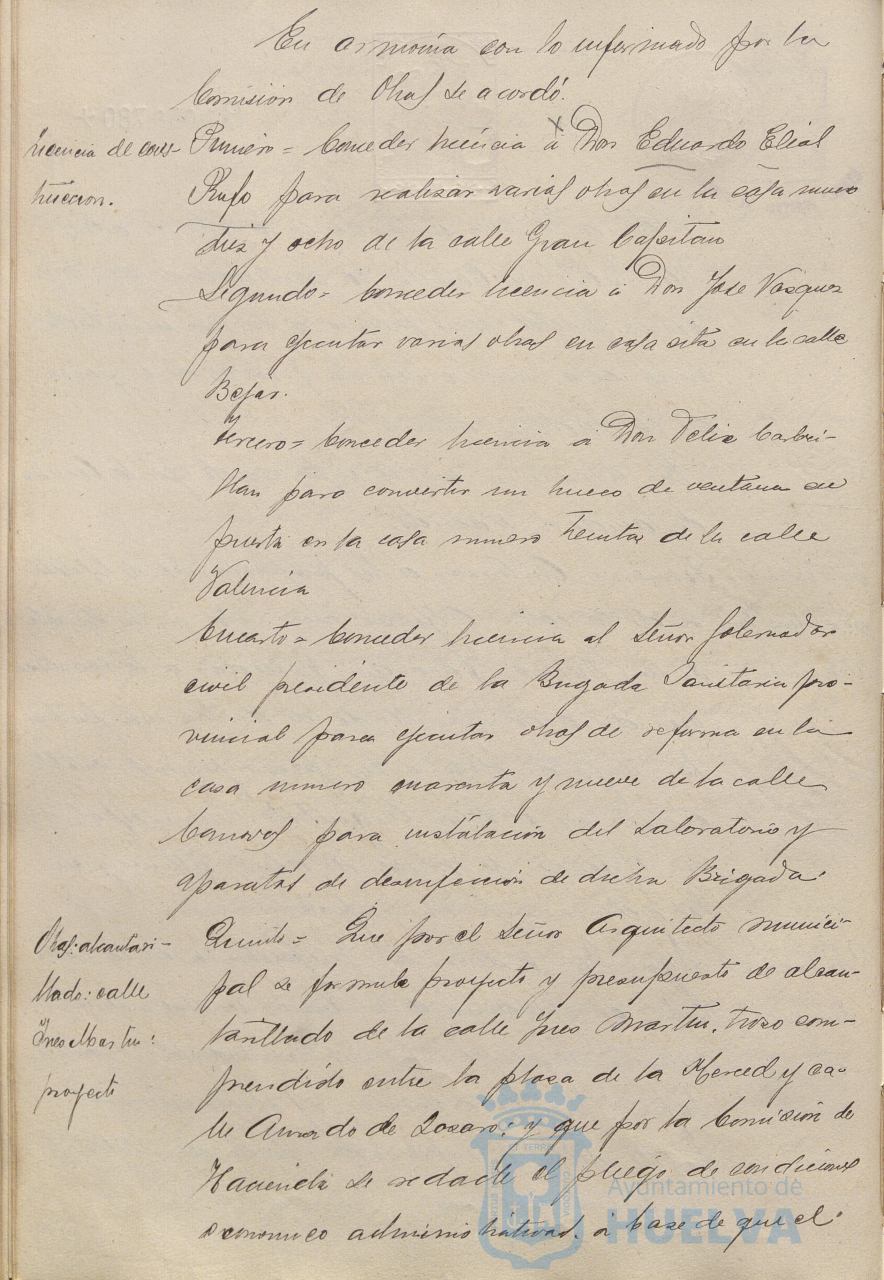 En armonia con lo informado por la
Comisión de Obras se acordó.
licencia de cons-
trucción.
Primero = Conceder licencia á Don Eduardo Elial
Rufo para realizar varias obras en la casa numero
diez y ocho de la calle Gran Capitan
Segundo = Conceder licencia á Don Jose Vazquez
para ejecutar varias obras en casa sita en la calle
Bejar.
Tercero = Conceder licencia á Don Felix
para convertir un hueco de ventana en
puerta en la casa numero treinta de la calle
Valencia
Cuarto = Conceder licencia al Señor Gobernador
civil presidente de la Brigada Sanitaria pro-
vincial para ejecutar obras de reforma en la
casa numero cuarenta y nueve de la calle
Canovas para instalación del Laboratorio y
aparatos de desinfección de dicha Brigada.
Obras: alcantari-
llado: calle
Ines Martin:
proyecto
Quinto = Que por el Señor Arquitecto munici-
pal se formule proyecto y presupuesto de alcan-
tarillado de la calle Ines Martin, trozo com-
prendido entre la plaza de la Merced y ca-
lle Amado de Lazaro; y que por la Comisión de
Hacienda se redacte el pliego de condiciones
economico administrativas, á base de que el
Ayuntamiento de
HUELVA